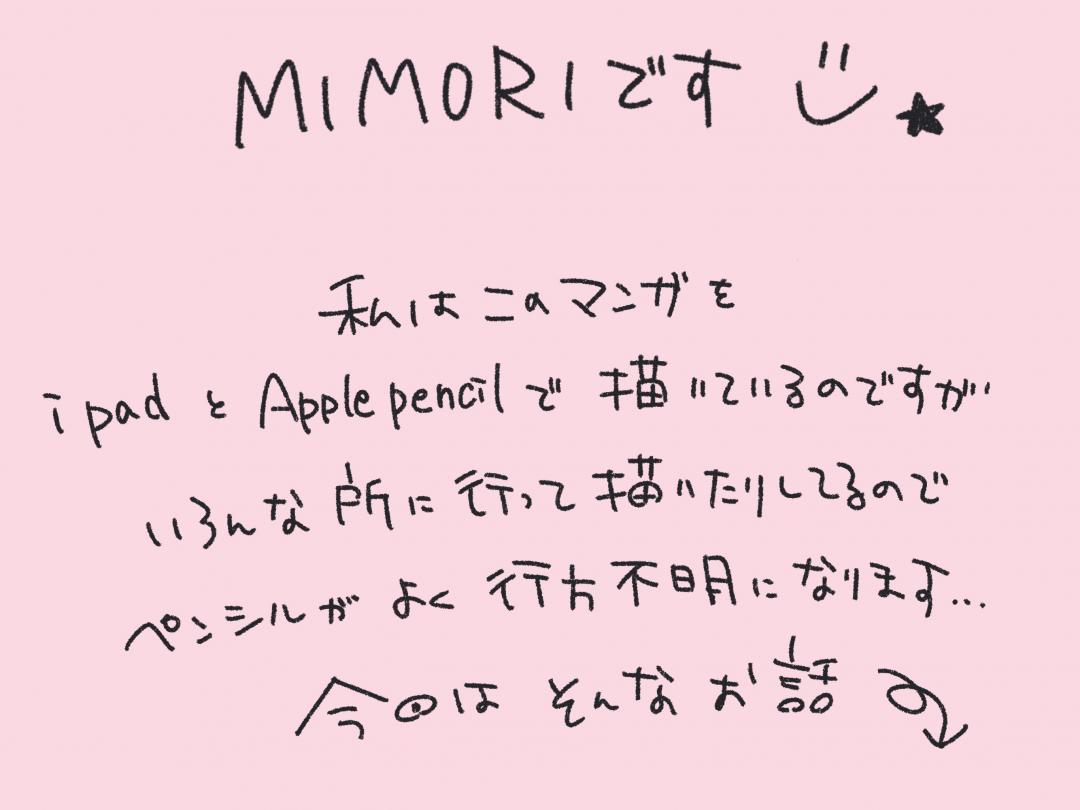 MIMORIです
私はこのマンガを
ipadとApple pencilで描いているのですが
いろんな所に行って描いたりしてるので
ペンシルがよく行方不明になります...
今回はそんなお話